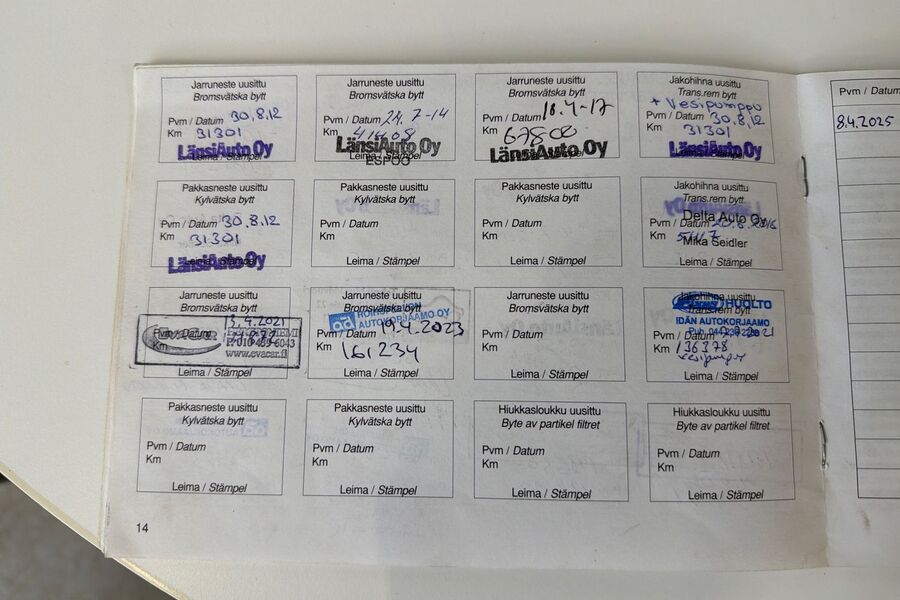 Jarruneste uusittu
Bromsvätska bytt
Pvm / Datum 30.8.12
Km 31301
LänsiAuto Oy
Leima / Stämpel
Jarruneste uusittu
Bromsvätska bytt
Pvm / Datum 24.7-14
Km
LänsiAuto Oy
Leima / Stämpel
ESPOO
Jarruneste uusittu
Bromsvätska bytt
Pvm / Datum 18.4-17
Km
LänsiAuto Oy
Jakohihna uusittu
Trans.rem bytt
+ Vesipumppu
Pvm / Datum 30.8.12
Km 31301
LänsiAuto Oy
Leima / Stämpel
Pakkasneste uusittu
Kylvätska bytt
Pvm / Datum 30.8.12
Km 31301
Leima / Stämpel
LänsiAuto Oy
Pakkasneste uusittu
Kylvätska bytt
Pvm / Datum
Km
Leima / Stämpel
Pakkasneste uusittu
Kylvätska bytt
Pvm / Datum
Km
Leima / Stämpel
Jakohihna uusittu
Trans.rem bytt
Delta Auto Oy
Pvm / Datum
Km
Mika Seidler
Leima / Stämpel
Jarruneste uusittu
Bromsvätska bytt
13.4.2021
Pvm / Datum
Km
www.ovacar.fi
Leima / Stämpel
Jarruneste uusittu
Bromsvätska bytt
AUTOKORJAAMO OY
Pvm / Datum 19.4.2023
Km 161234
Leima / Stämpel
Jarruneste uusittu
Bromsvätska bytt
Pvm / Datum
Km
Leima / Stämpel
Jakohihna uusittu
Trans.rem bytt
HUOLTO
IDÄN AUTOKORJAAMO
Pvm / Datum
Km 136378
vesipumppu
Leima / Stämpel
Pakkasneste uusittu
Kylvätska bytt
Pvm / Datum
Km
Leima / Stämpel
Pakkasneste uusittu
Kylvätska bytt
Pvm / Datum
Km
Leima / Stämpel
Hiukkasloukku uusittu
Byte av partikel filtret
Pvm / Datum
Km
Leima / Stämpel
Hiukkasloukku uusittu
Byte av partikel filtret
Pvm / Datum
Km
Leima / Stämpel
14
Pvm / Datum
8.4.2025